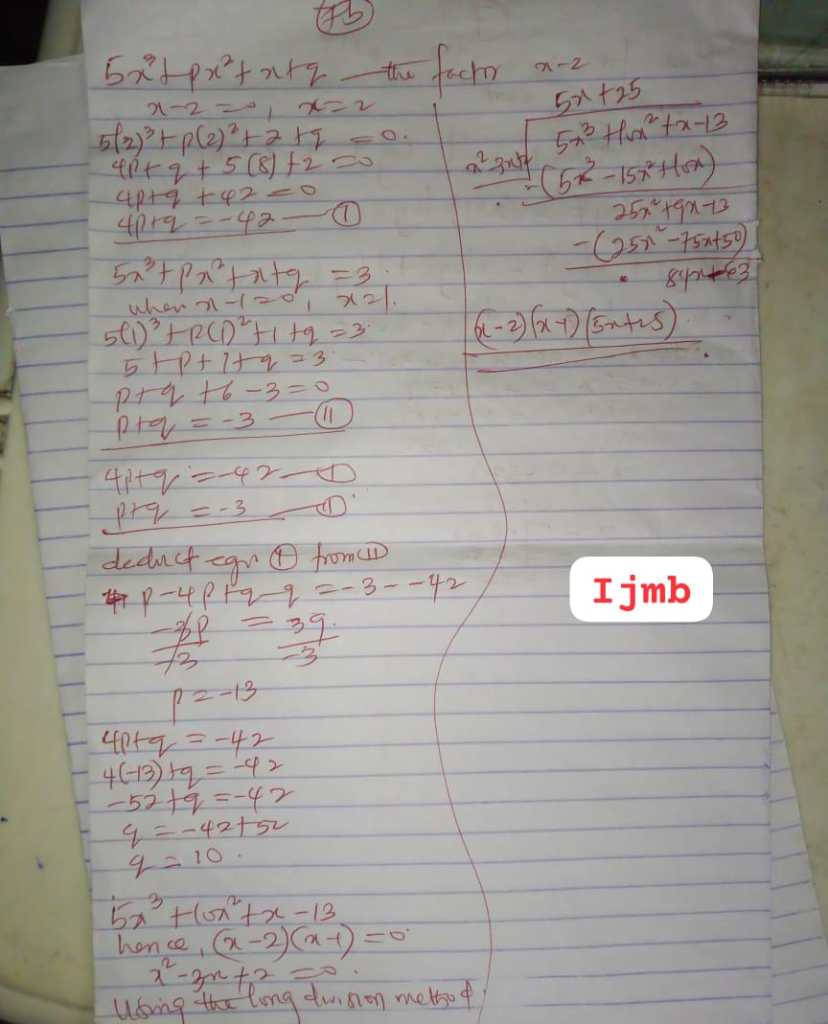 7b
5x³+px²+x+q — the factor x-2
x-2=0, x=2
5(2)³+p(2)²+2+q=0.
4p+q+5(8)+2=0
4p+q+42=0
4p+q=-42 — (I)
5x³+px²+x+q=3.
when x-1=0, x=1.
5(1)³+P(1)²+1+q=3
5+p+1+q=3
p+q+6-3=0
p+q=-3 — (II)
4p+q=-42 — (I)
p+q=-3 — (II)
deduct eqn (I) from (II)
p-4p+q-q=-3--42
-3p = 39
-3 -3
p=-13
4p+q=-42
4(-13)+q=-42
-52+q=-42
q=-42+52
q=10.
5x³+10x²+x-13
hence, (x-2)(x-1)=0
x²-3x+2=0.
Using the long division method.
5x+25
5x³+10x²+x-13
-(5x³-15x²+10x)
25x²+9x-13
-(25x²-75x+50)
(x-2)(x-1)(5x+25)
Ijmb